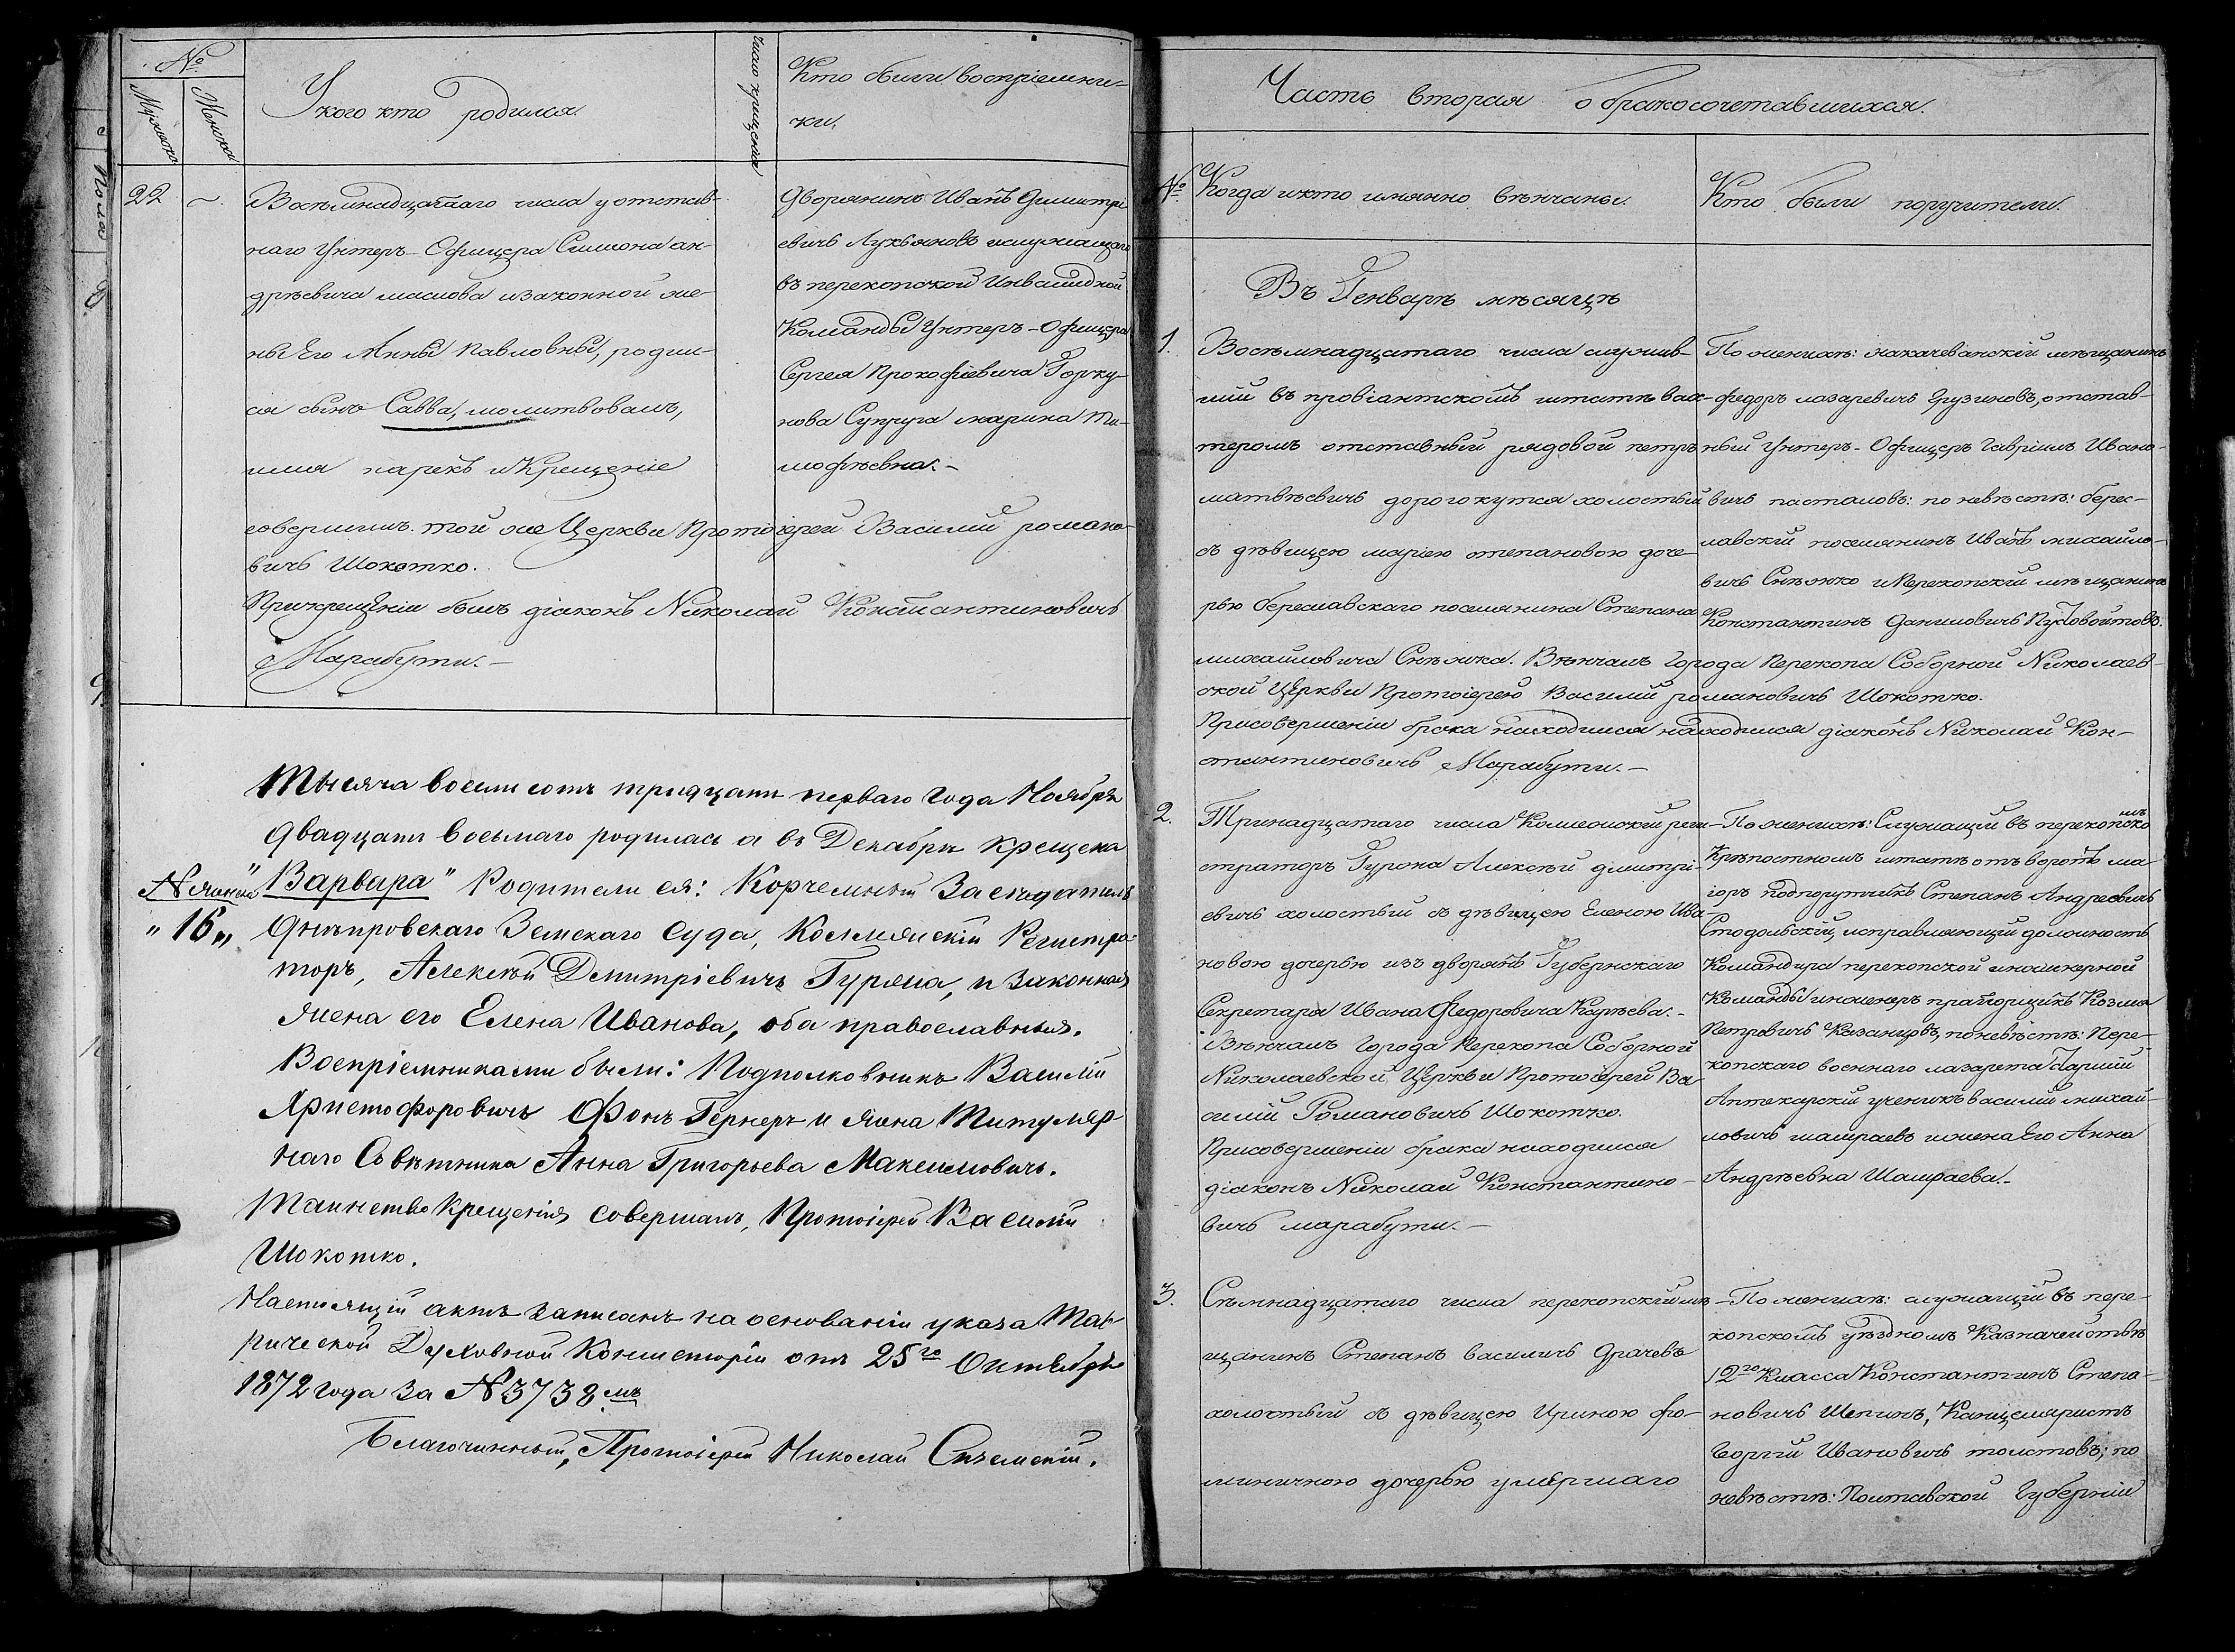 №
Мужеска
Женска
У кого кто родился.
Число крещенія
Кто были воспріемни-
ки.
22
Восемнадцатаго числа у отстав-
наго Унтеръ-Офицера Симиона ан-
дрѣевича маслова и законной же-
ны Его Анны Павловны, родил-
ся сынъ Савва, молитвовалъ,
имя нарекъ и Крещеніе
совершилъ той же Церкви Протоіерей Василий романо-
вичъ Шокотко.
При крещеніи былъ діаконъ Николай Константиновичъ
Марабути.-
Дворянинъ Иванъ Димитрі-
евичъ Лукьяновъ и служащаго
въ перекопской Инвалидной
Команды Унтеръ-Офицера
Сергея Прокофіевича Горку-
нова Супруга марина Ти-
мофѣевна.-
Тысяча восемьсотъ тридцать перваго года Ноября
двадцать восьмаго родилась а въ Декабрѣ крещена
"Варвара" Родители ея: Корчемный Засѣдатель
N женска
"16"
Днѣпровскаго Земскаго Суда, Коллежскій Регистра-
торъ, Алексѣй Дмитріевичъ Гуржа, и законная
жена его Елена Иванова, оба православныя.
Воспріемниками были: Подполковникъ Василій
Христофоровичъ Фонъ Гернеръ и жена Титуляр-
наго Совѣтника Анна Григорьева Максимовичъ.
Таинство Крещенія совершалъ, Протоіерей Василій
Шокотко.
Настоящій актъ записанъ на основаніи указа Тав-
рической Духовной Консисторіи отъ 25го Октября
1872 года за N 3738мъ
Благочинный, Протоіерей Николай Снѣгскій.
Часть вторая о бракосочетавшихся.
№
Когда и кто имянно вѣнчаны.
Кто были поручители.
Въ Генварѣ мѣсяцѣ
1.
Восемнадцатаго числа служив-
шій въ провіантскомъ штатѣ вах-
теромъ отставный рядовой петръ
матвѣевичъ дорогокутся холостый
съ дѣвицею маріею степановою доче-
рью бериславскаго поселянина Степана
михайловича Снѣжка. Вѣнчалъ Города Перекопа Соборной Николаев-
ской Церкви Протоіерей Василий романовичъ Шокотко.
При совершеніи брака находился находился діаконъ Николай Кон-
стантиновичъ Марабути.-
По женихѣ: нахичеванскій мѣщанинъ
федоръ лазаревичъ Грузиновъ, отстав-
ный Унтеръ-Офицеръ Гавріилъ Ивано-
вичъ пасталовъ: по невѣстѣ: берис-
лавскій поселянинъ Иванъ михайло-
вичъ Снѣжко и Перекопскій мѣщанинъ
Константинъ Даниловичъ Пустовойтовъ.
2.
Тринадцатаго числа Коллежскій реги-
страторъ Гуржа Алексѣй димитрі-
евичъ холостый съ дѣвицею Еленою Ива-
новою дочерью изъ дворянъ Губернскаго
Секретаря Ивана Федоровича Карѣева.-
Вѣнчалъ Города Перекопа Соборной
Николаевской Церкви Протоіерей Ва-
силій Романовичъ Шокотко.
При совершеніи брака находился
діаконъ Николай Константино-
вичъ марабути.-
По женихѣ: Служащій въ перекопскомъ
Крѣпостномъ штатѣ отъ воротъ ма-
іоръ подпоручикъ Степанъ Андреевичъ
Стодольскій, исправляющій должность
Командира перекопской инженерной
Команды инженеръ прапорщикъ Козма
Петровичъ Казанцовъ, по невѣстѣ: Пере-
копскаго военнаго лазарета старшій
Аптекарскій ученикъ василий михай-
ловичъ шашраевъ и жена Его Анна
Андрѣевна Шашраева.-
3.
Сѣмнадцатаго числа перекопскій мѣ-
щанинъ Степанъ василичъ Драчевъ
холостый съ дѣвицею Ириною фо-
миничною дочерью умершаго
По женихѣ: служащій въ пере-
копскомъ уѣздномъ Казначействѣ
12го Класса Константинъ Степа-
новичъ Шепинъ, Канцеляристъ
Георгій Ивановичъ толстовъ; по
невѣстѣ: Полтавской Губерніи